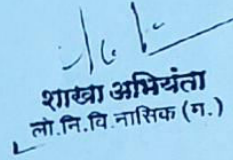 शाखा अभियंता
लो.नि.वि.नासिक (ग.)